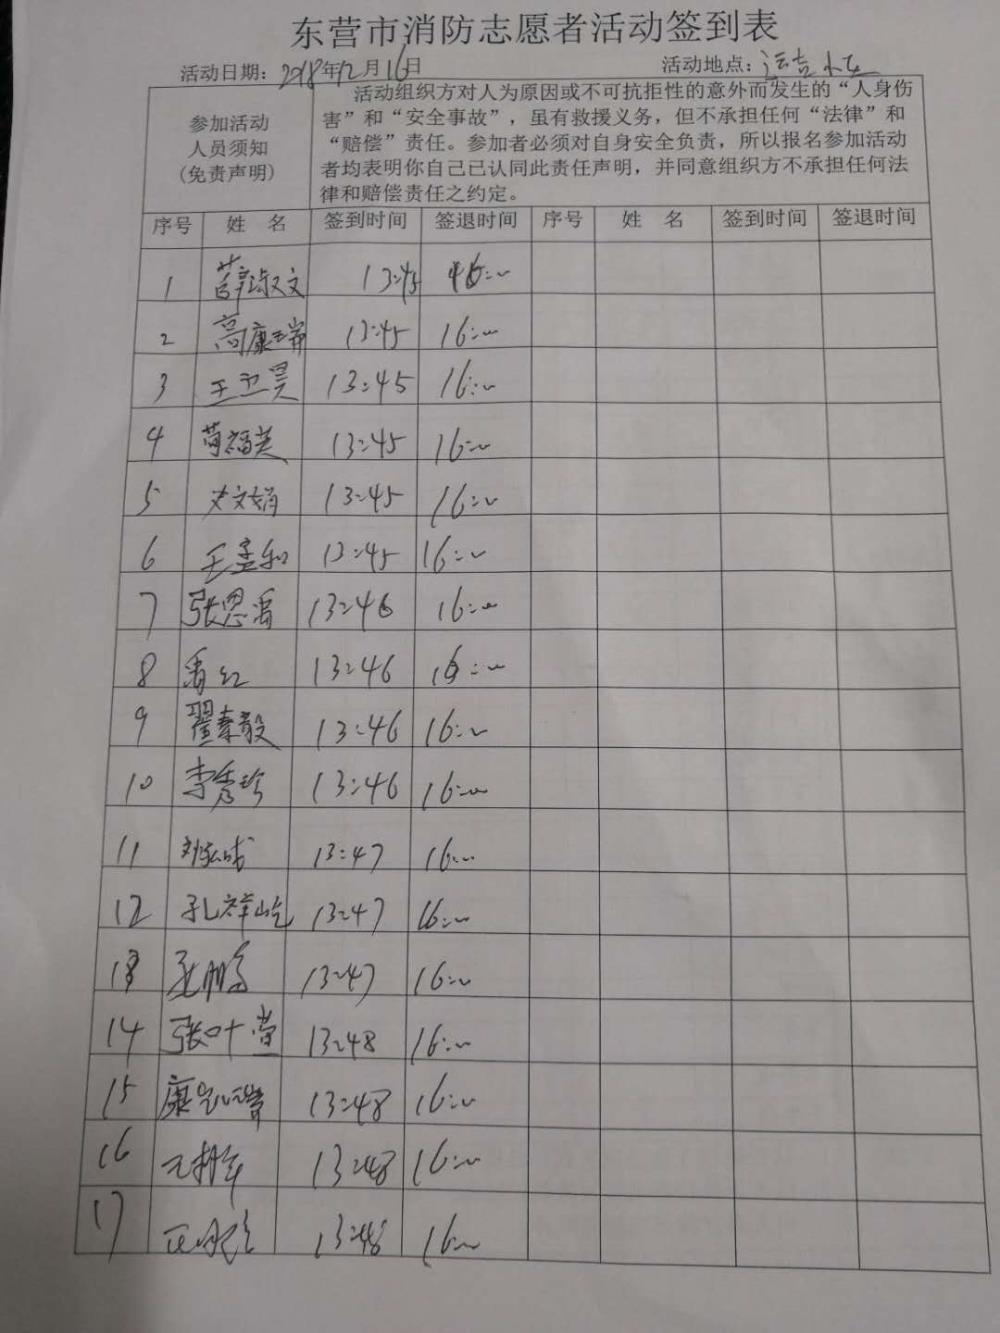 东营市消防志愿者活动签到表
活动日期：2018年12月16日 活动地点：运吉小区
参加活动
人员须知
(免责声明)
活动组织方对人为原因或不可抗拒性的意外而发生的“人身伤
害”和“安全事故”，虽有救援义务，但不承担任何“法律”和
“赔偿”责任。参加者必须对自身安全负责，所以报名参加活动
者均表明你自己已认同此责任声明，并同意组织方不承担任何法
律和赔偿责任之约定。
序号 姓 名 签到时间 签退时间 序号 姓 名 签到时间 签退时间
1 薛淑文 13:45 16:00
2 高康 13:45 16:00
3 王卫昊 13:45 16:00
4 苟福英 13:45 16:00
5 史文娟 13:45 16:00
6 王孟和 13:45 16:00
7 张恩禹 13:46 16:00
8 禹红 13:46 16:00
9 翟秦毅 13:46 16:00
10 李秀珍 13:46 16:00
11 13:47 16:00
12 孔祥屹 13:47 16:00
13 13:47 16:00
14 张叶莹 13:48 16:00
15 康 13:48 16:00
16 13:48 16:00
17 13:48 16:00